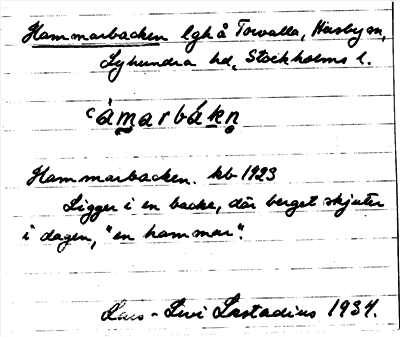 Hammarbacken lgh å Torvalla, Husby sn,
Lyhundra hd, Stockholms l.
ʿàmarbákn̥
Hammarbacken. kb 1923
Ligger i en backe, där berget skjuter
i dagen, "en hammar".
Lars-Levi Læstadius 1934.